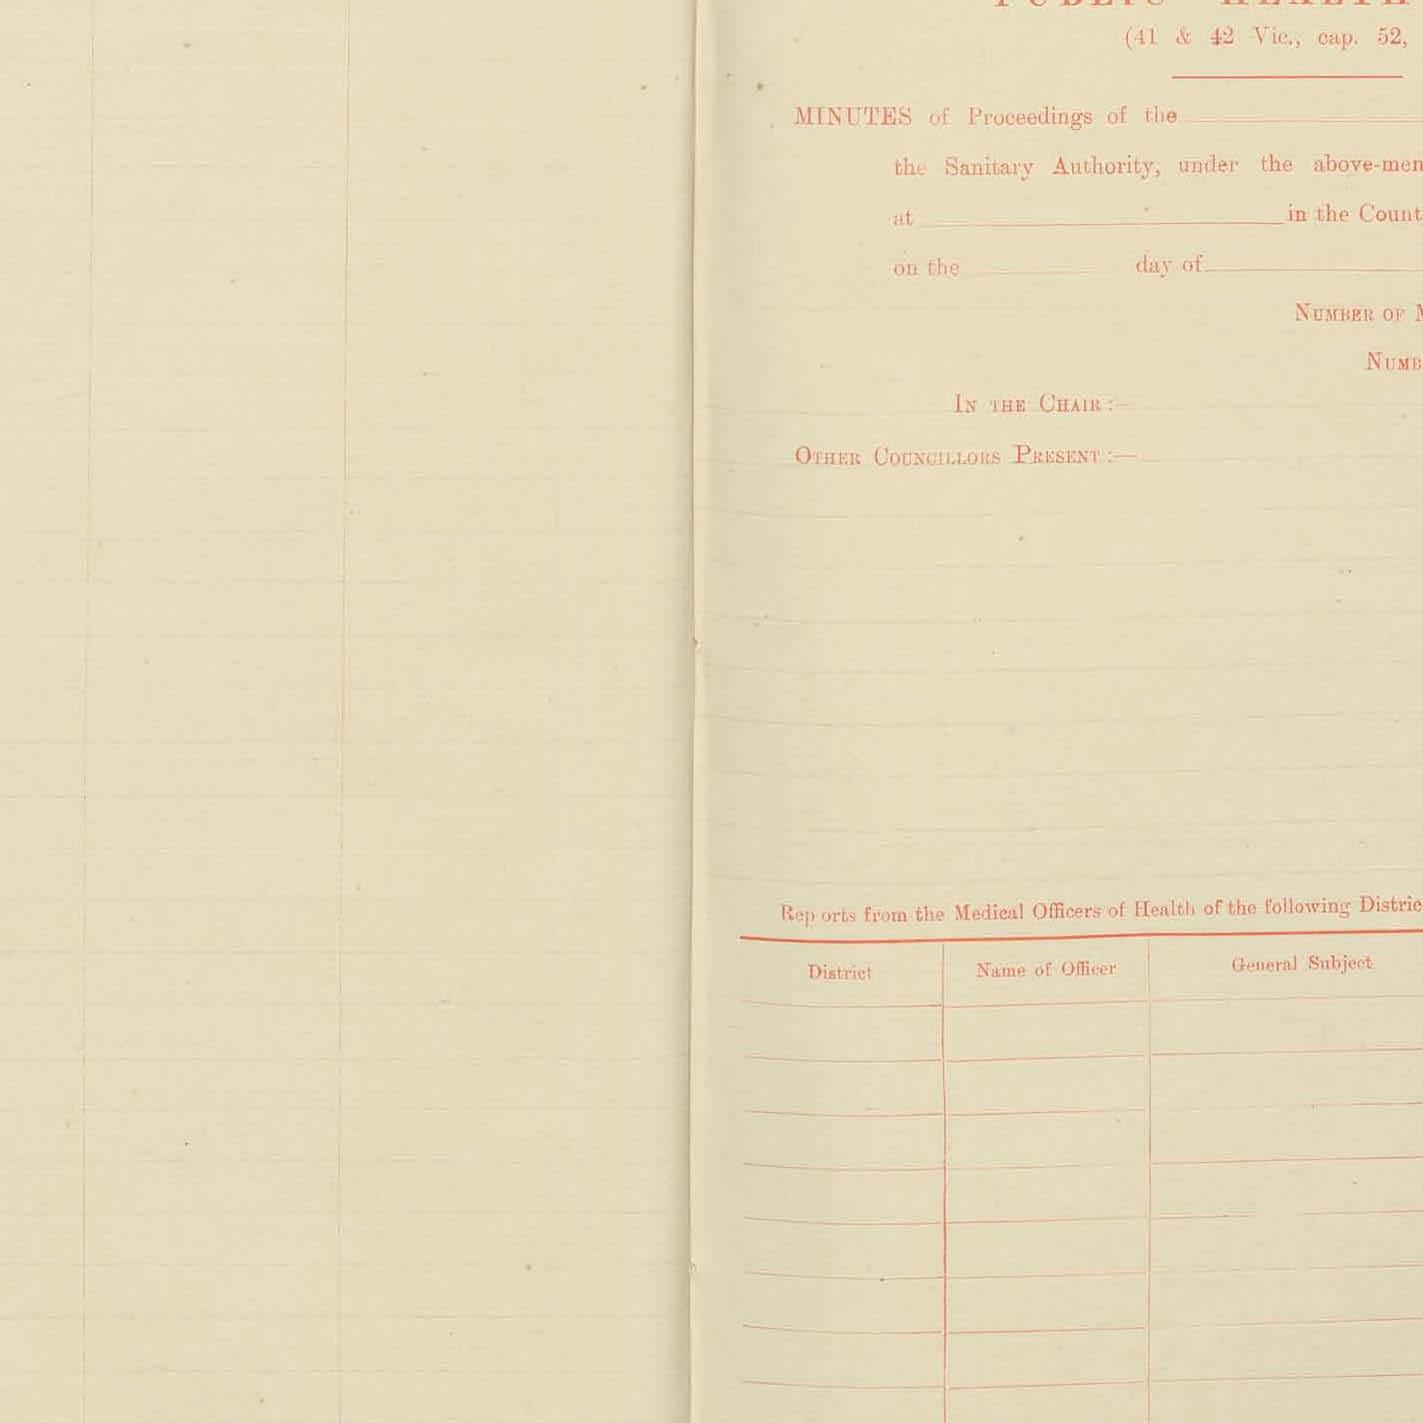 PUBLIC HEALTH
(41 & 42 Vic., cap. 52,
MINUTES of Proceedings of the
the Sanitary Authority, under the above-men
at in the Count
on the day of
NUMBER OF M
NUMB
IN THE CHAIR :—
OTHER COUNCILLORS PRESENT :—
Reports from the Medical Officers of Health of the following Distric
District Name of Officer General Subject